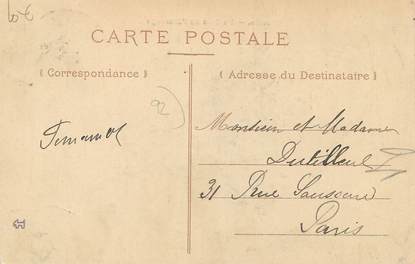 CARTE POSTALE
( Correspondance )
( Adresse du Destinataire )
92
Monsieur et Madame
Dutilleul
31 Rue Saussure
Paris